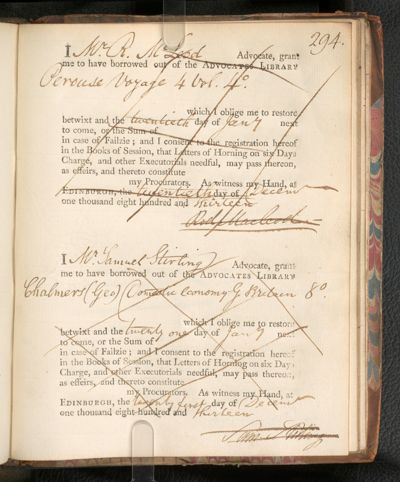 294.
I Mr. R. McLeod Advocate, grant
me to have borrowed out of the ADVOCATES LIBRARY
Perouse Voyage 4 Vol. 4o.
which I oblige me to restore
betwixt and the twentieth day of Jany next
to come, or the Sum of
in case of Failzie; and I consent to the registration hereof
in the Books of Session, that Letters of Horning on six Days
Charge, and other Executorials needful, may pass thereon,
as effeirs, and thereto constitute
my Procurators. As witness my Hand, at
EDINBURGH, the twentieth day of Decemr
one thousand eight hundred and thirteen
I Mr. Samuel Stirling Advocate, grant
me to have borrowed out of the ADVOCATES LIBRARY
Chalmers (Geo) Domestic Economy G. Britain 8o.
which I oblige me to restore
betwixt and the twenty one day of Jany next
to come, or the Sum of
in case of Failzie; and I consent to the registration hereof
in the Books of Session, that Letters of Horning on six Days
Charge, and other Executorials needful, may pass thereon,
as effeirs, and thereto constitute
my Procurators. As witness my Hand, at
EDINBURGH, the twenty first day of Decemr
one thousand eight hundred and thirteen
Samuel Stirling